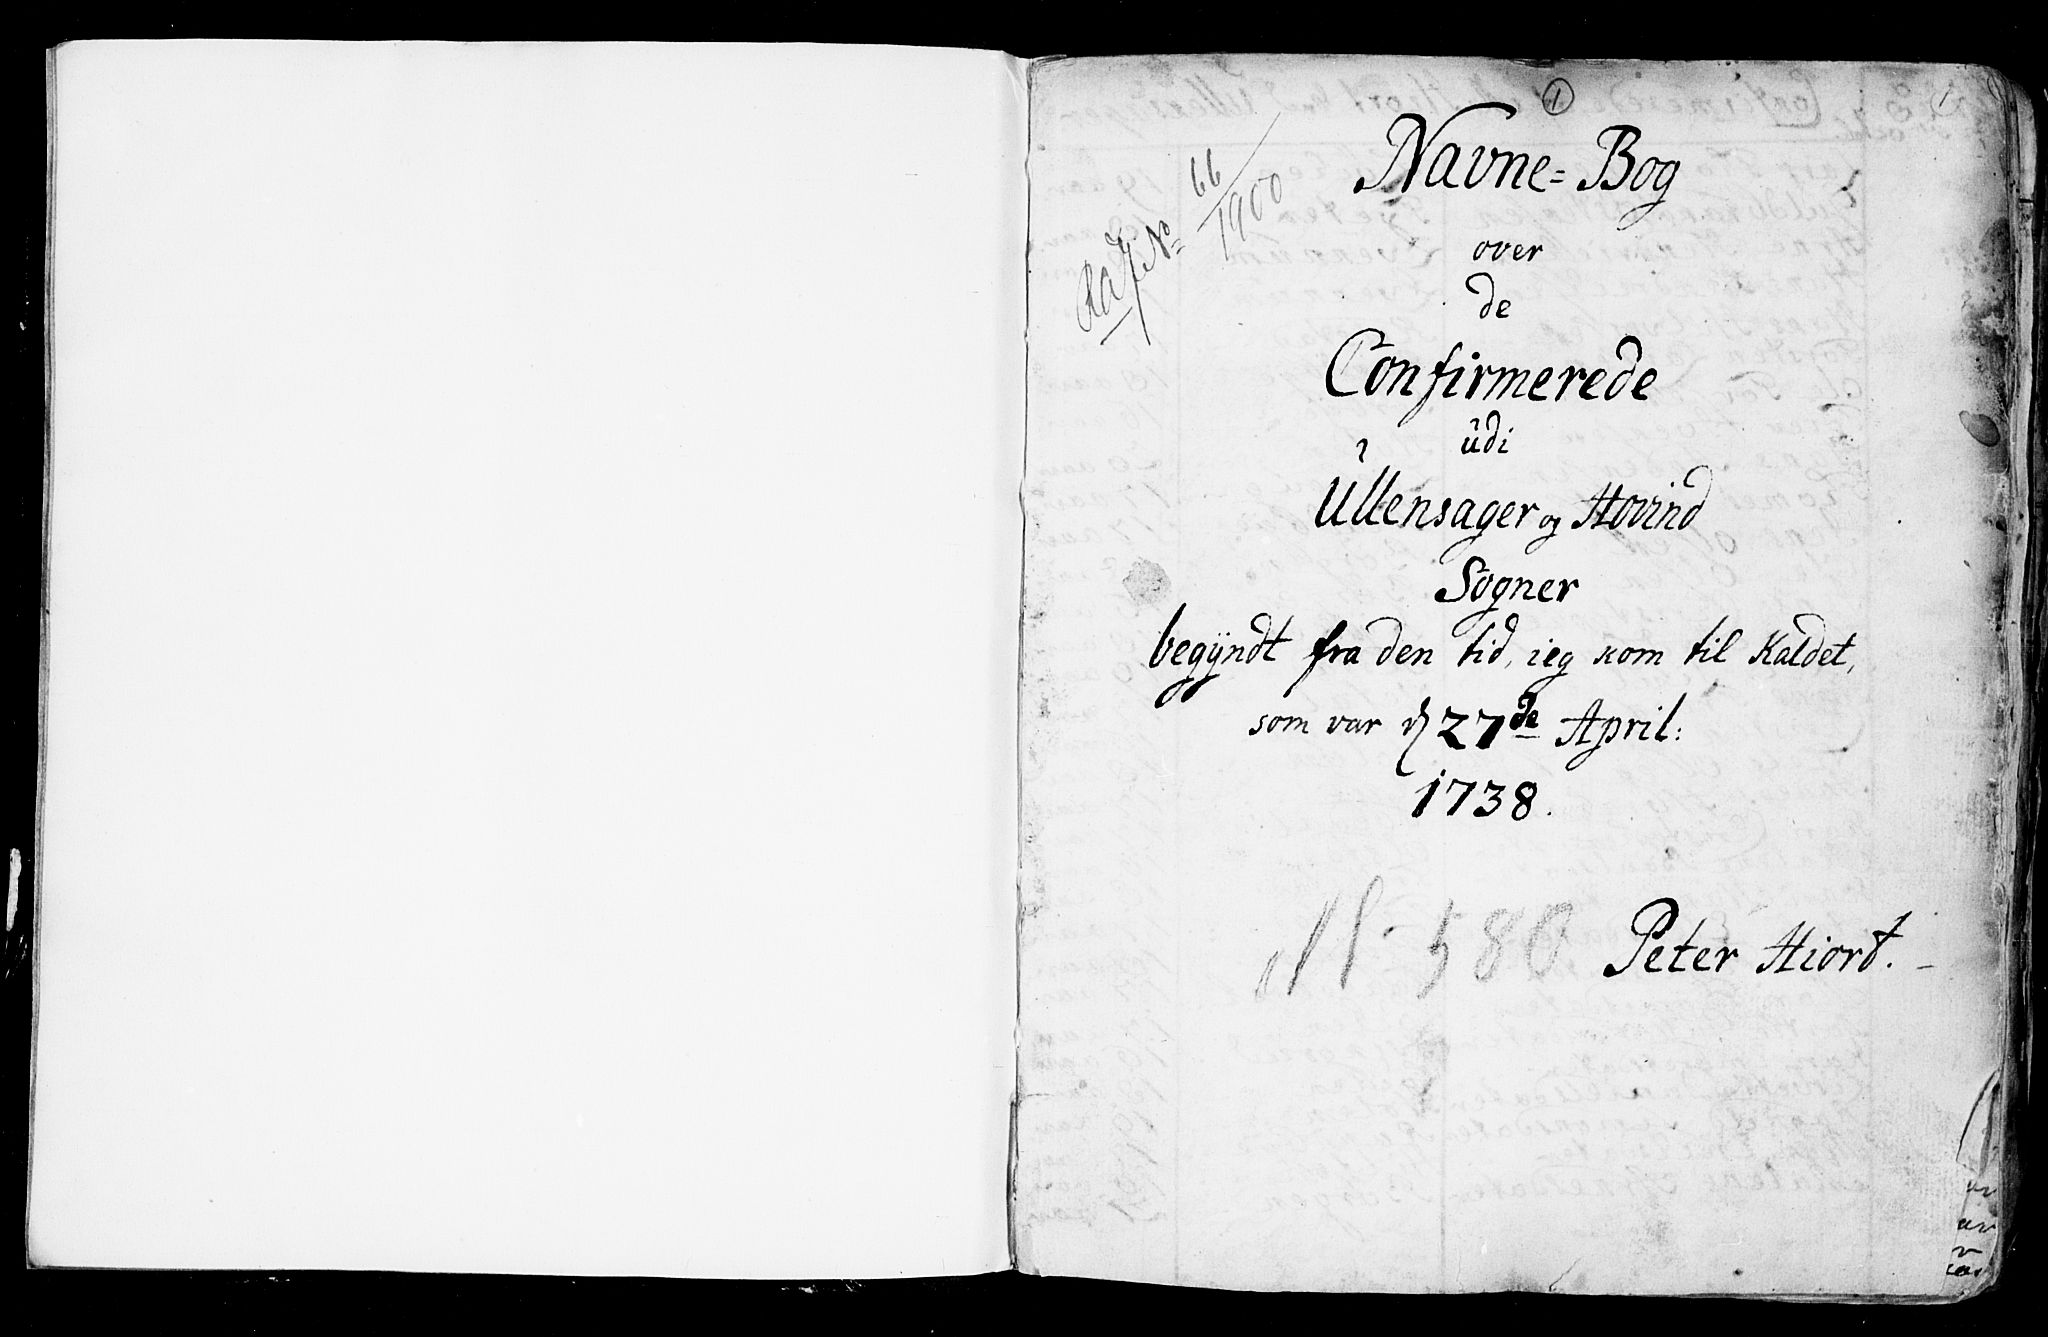 1
1
66
1900
Navne=Bog
over
de
Confirmerede
udi
Ullensager og Hovind
Sogner
begÿndt fra den tid, ieg kom til Kaldet,
som var d 27de April:
1738.
N. 580
Peter Hiort.